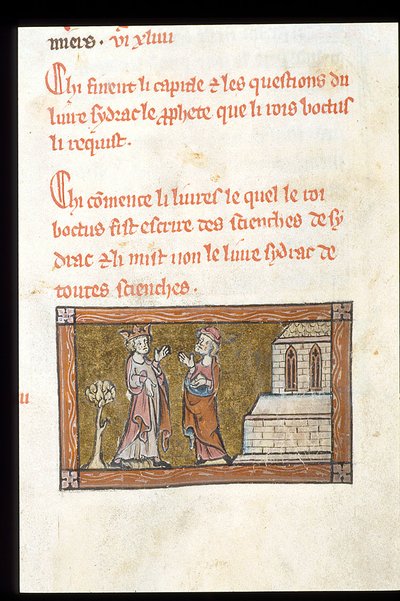 miers. vi xliiii
Chi finent li capitle ⁊ les questions du
liure sydrac le prophete que li rois boctus
li requist.
Chi cōmence li liures le quel le roi
boctus fist escrire des scienches de sy
drac ⁊ li mist non le liure sydrac de
toutes scienches.